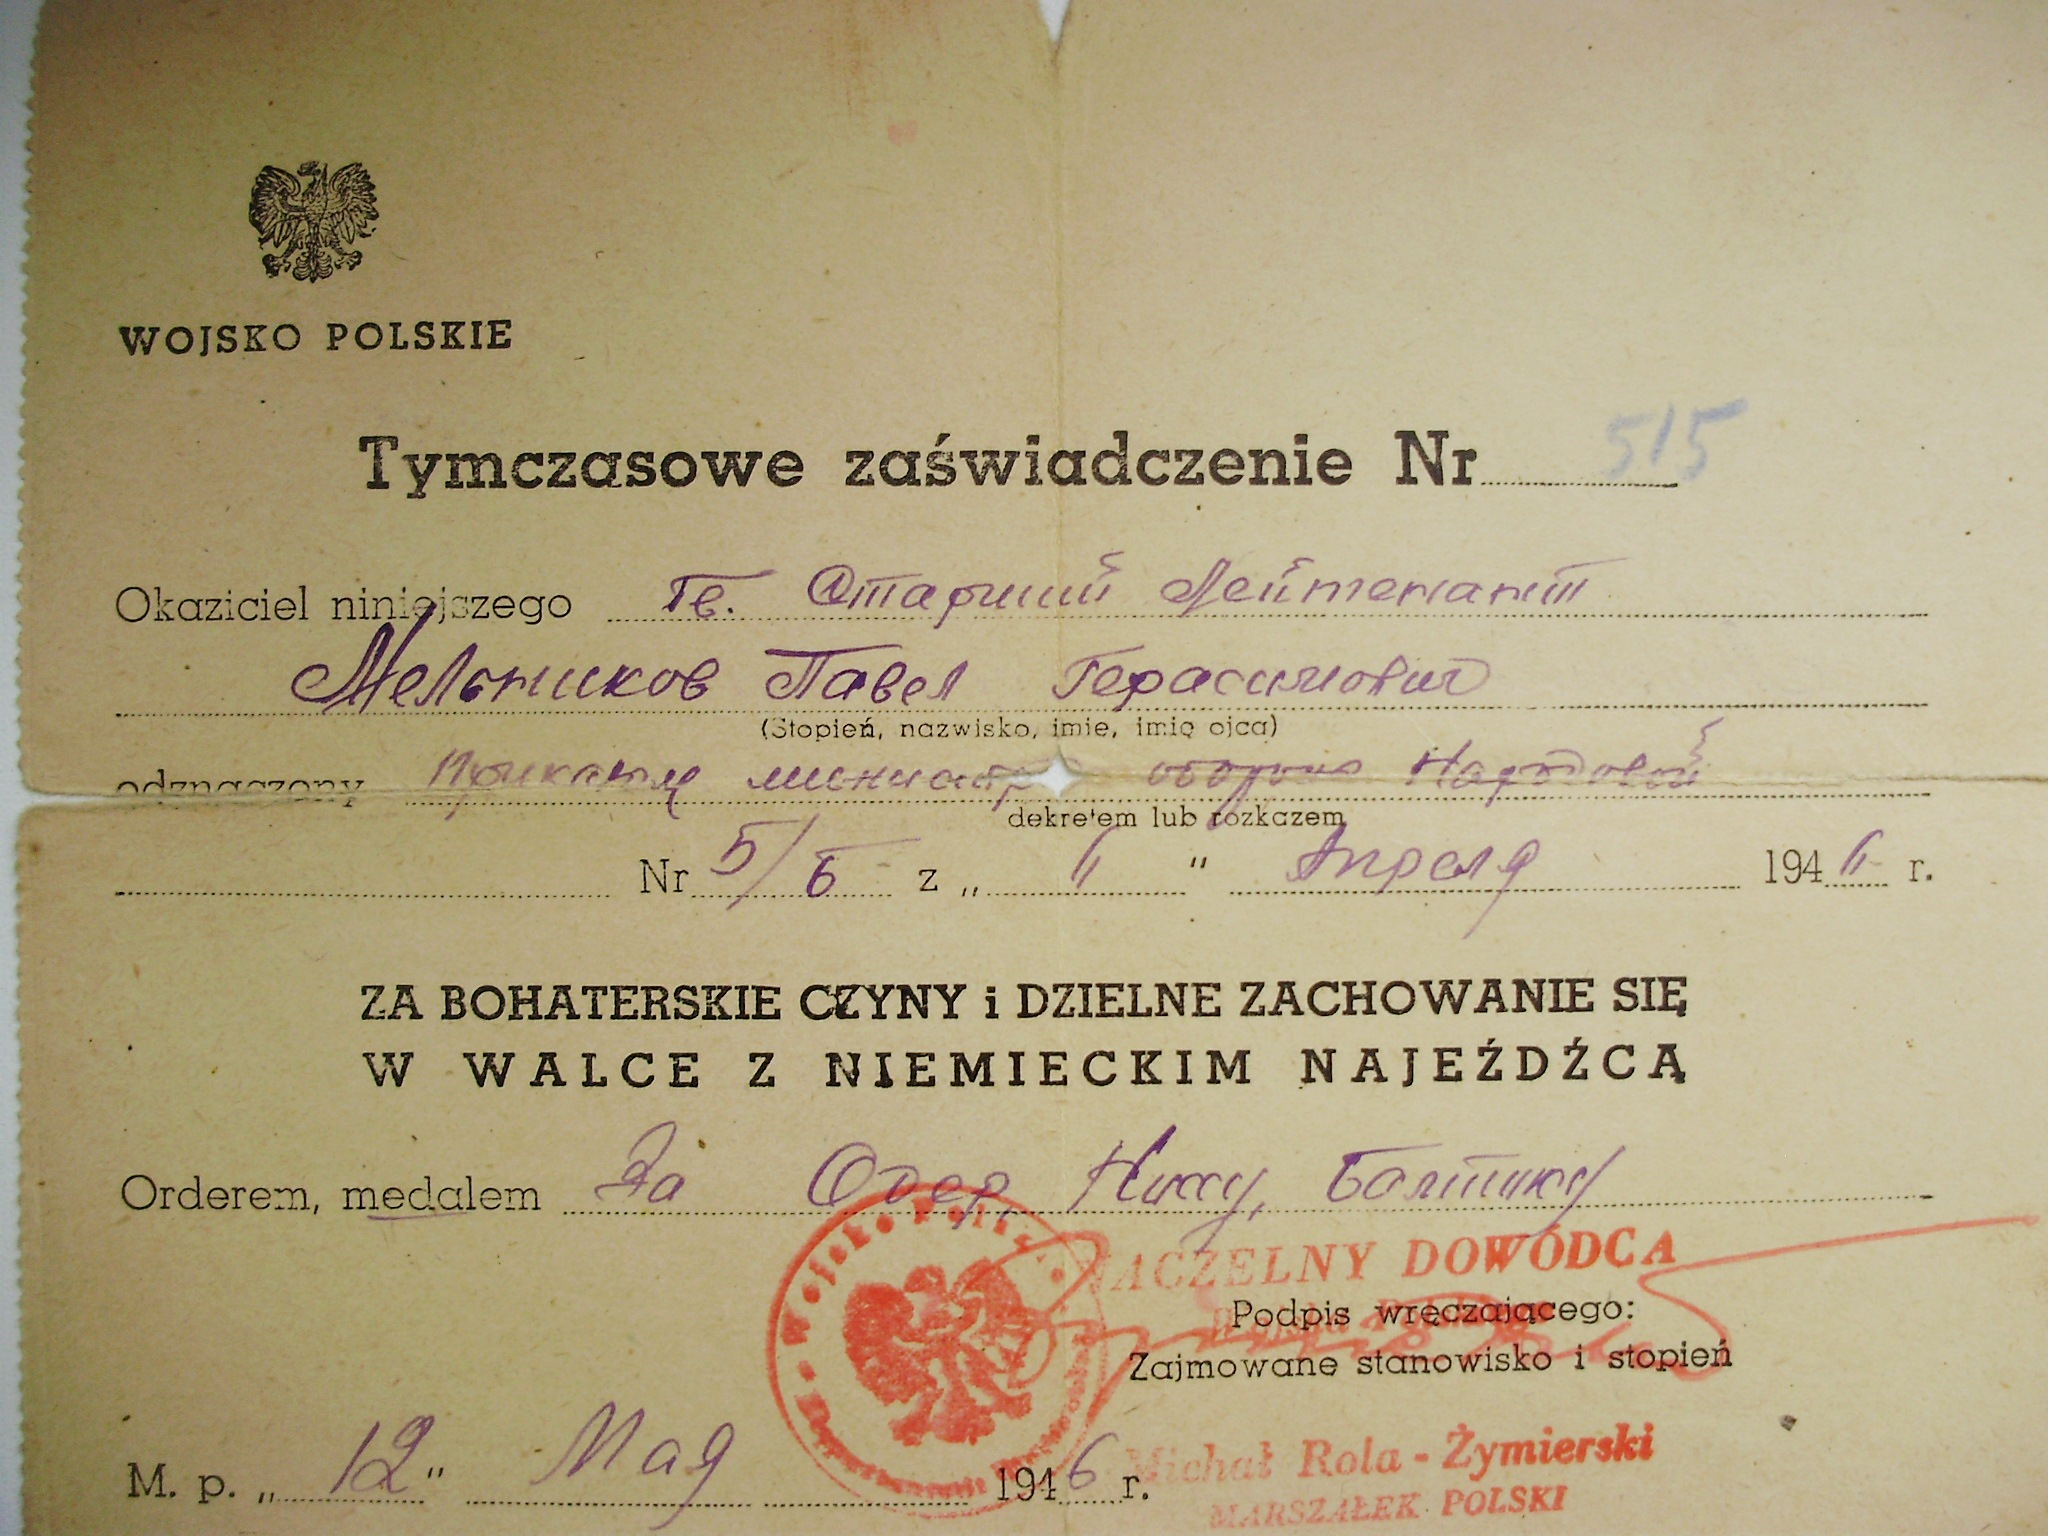 WOJSKO POLSKIE
Tymczasowe zaświadczenie Nr 515
Okaziciel niniejszego Гв. Старший Лейтенант
Мельников Павел Герасимович
(Stopień, nazwisko, imię, imię ojca)
odznaczony Приказом министра обороны Народовой
dekretem lub rozkazem
Nr 5/6 z „ " Апреля 194 r.
ZA BOHATERSKIE CZYNY i DZIELNE ZACHOWANIE SIĘ
W WALCE Z NIEMIECKIM NAJEŹDŹCĄ
Orderem, medalem За Одер, Нису, Балтику
Wojsko Polskie
NACZELNY DOWÓDCA
Podpis wręczającego:
Zajmowane stanowisko i stopień
M. p. „ 12 " Мая 1946 r.
Michał Rola - Żymierski
MARSZAŁEK POLSKI